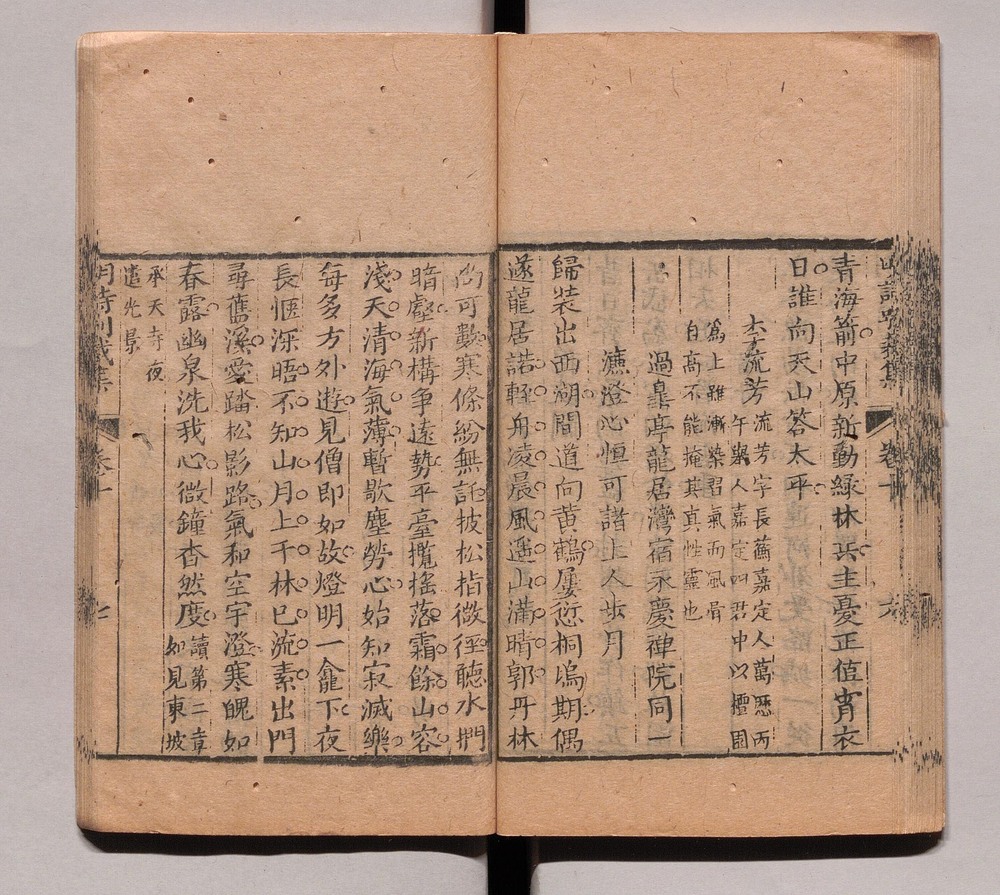 青海箭中原新動綠林兵主憂正值宵衣
日誰向天山答太平
李流芳
流芳字長蘅嘉定人萬曆丙
午舉人嘉定四君中以檀園
爲上雖漸染習氣而風骨
自高不能掩其真性靈也
過皐亭龍居灣宿永慶禪院同一
濂澄心恒可諸上人步月
歸裝出西湖間道向黄鶴屢愆桐塢期偶
遂龍居諾輕舟凌晨風遥山滿晴郭丹林
尚可數寒條紛無託披松指微徑聽水捫
暗壑新構争遠勢平臺攬搖落霜餘山容
淺天清海氣薄暫歇塵勞心始知寂滅樂
每多方外遊見僧即如故燈明一龕下夜
長愜深晤不知山月上千林已流素出門
尋舊溪愛踏松影路氣和空宇澄寒魄如
春露幽泉洗我心微鐘杳然度
讀第二章
如見東坡
承天寺夜
遣光景
明詩别裁集
卷十